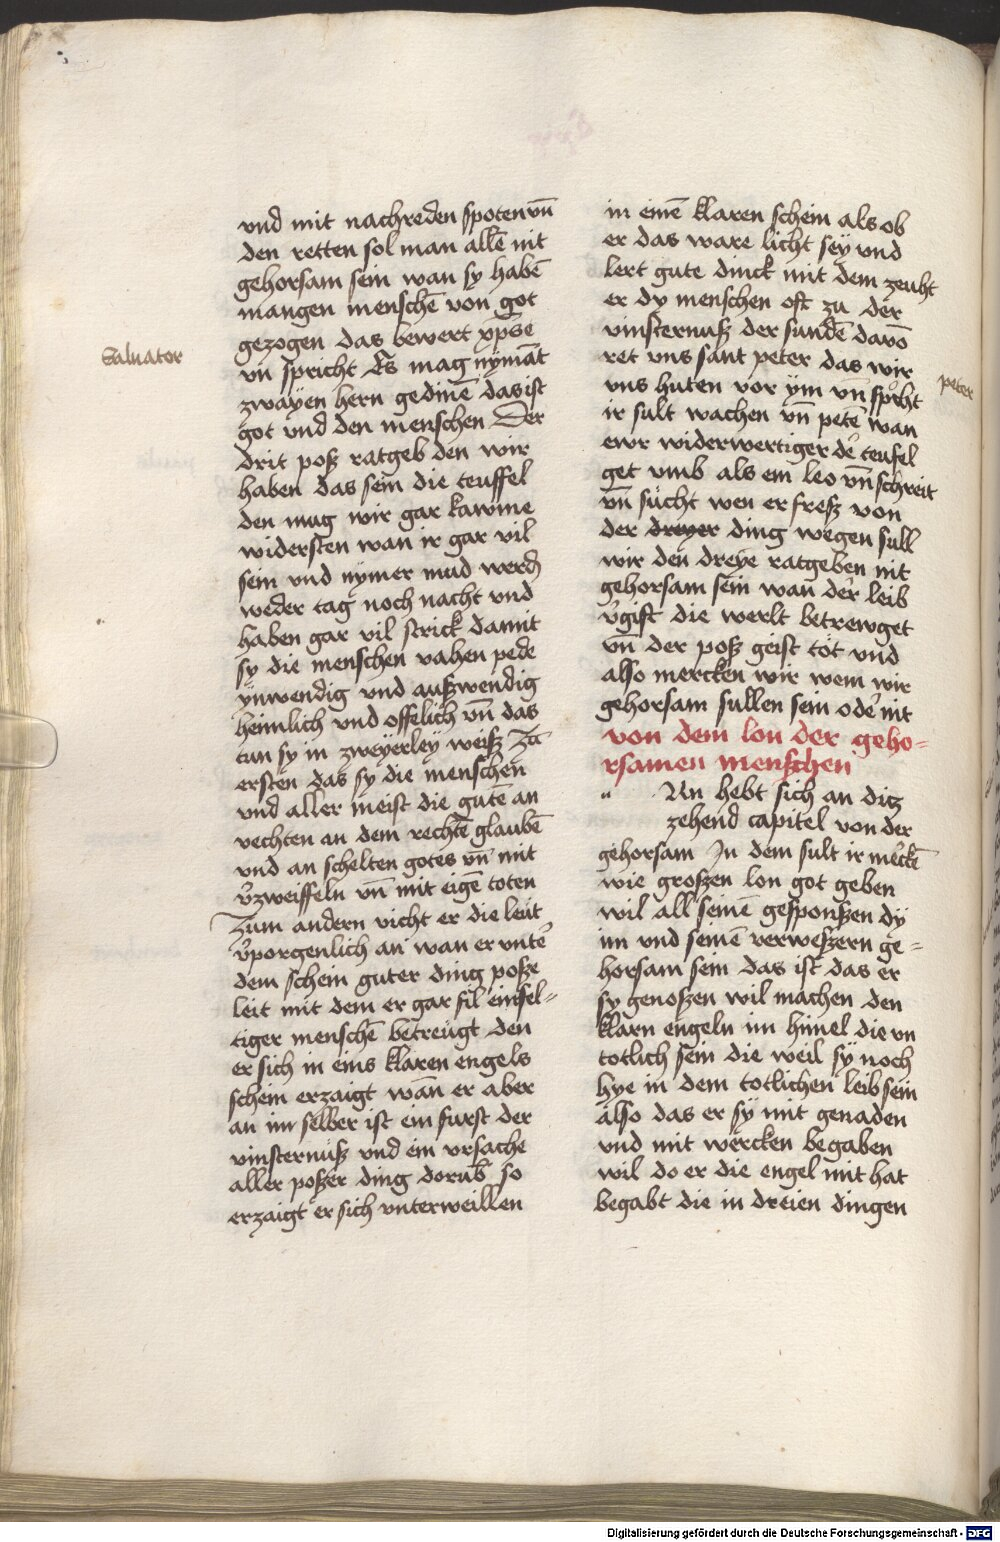 vnd mit nachreden spoten vn̄
den retten sol man allē nit
gehorsam sein wan sy habē
mangen menschē von got
gezogen das bewert xp̄se
Saluator
vn̄ spricht Es mag nymāt
zwayen hern gedinē das ist
got vnd den menschen Der
drit posz ratgeb den wir
haben das sein die teuffel
den mug wir gar kawme
widersten wan ir gar vil
sein vnd nymer mud werdn̄
weder tag noch nacht vnd
haben gar vil strick damit
sy die menschen vahen pede
ynwendig vnd auszwendig
heimlich vnd offelich vn̄ das
tun sy in zweyerley weisz Zū
ersten das sy die menschen
vnd aller meist die gutē an
vechten an dem rechtē glaubē
vnd an schelten gotes vn̄ mit
v̓zweiffeln vn̄ mit eigē toten
Zum andern vicht er die leut
v̓porgenlich an wan er vnte᷑
dem schein guter ding posze
leit mit dem er gar fil einfel=
tiger menschē betreugt den
er sich in eins klaren engels
schein erzaigt wan er aber
an im selber ist ein furst der
vinsternusz vnd ein vrsache
aller poszer ding dorūb so
erzaigt er sich vnterweillen
in einē klaren schein als ob
er das ware licht sey vnd
lert gute dinck mit dem zeuht
er dy menschen oft zu der
vinsternusz der sundē davō
ret vns sant peter das wir
peter
vns huten vor ym vn̄ spricht
ir sult wachen vn̄ petē wan
ewr widerwertiger de᷑ teufel
get vmb als ein leo vn̄ schreit
vn̄ sucht wen er fresz von
der dreyer ding wegen sull
wir den dreye ratgeben nit
gehorsam sein wan der leib
v̓gift die werlt betrewget
vn̄ der posz geist tot vnd
also mercken wir wem wir
gehorsam sullen sein ode᷑ nit
von dem lon der geho=
rsamen menschen
„ An hebt sich an ditz
zehend capitel von der
gehorsam In dem sult ir me᷑ckē
wie groszen lon got geben
wil all seinē gesponszen dy
im vnd seinē verweszern ge=
horsam sein das ist das er
sy genoszen wil machen den
klarn engeln im himel die vn
totlich sein die weil sy noch
hye in dem totlichen leib sein
also das er sy mit genaden
vnd mit wercken begaben
wil do er die engel mit hat
begabt die in dreien dingen
Digitalisierung gefördert durch die Deutsche Forschungsgemeinschaft - DFG